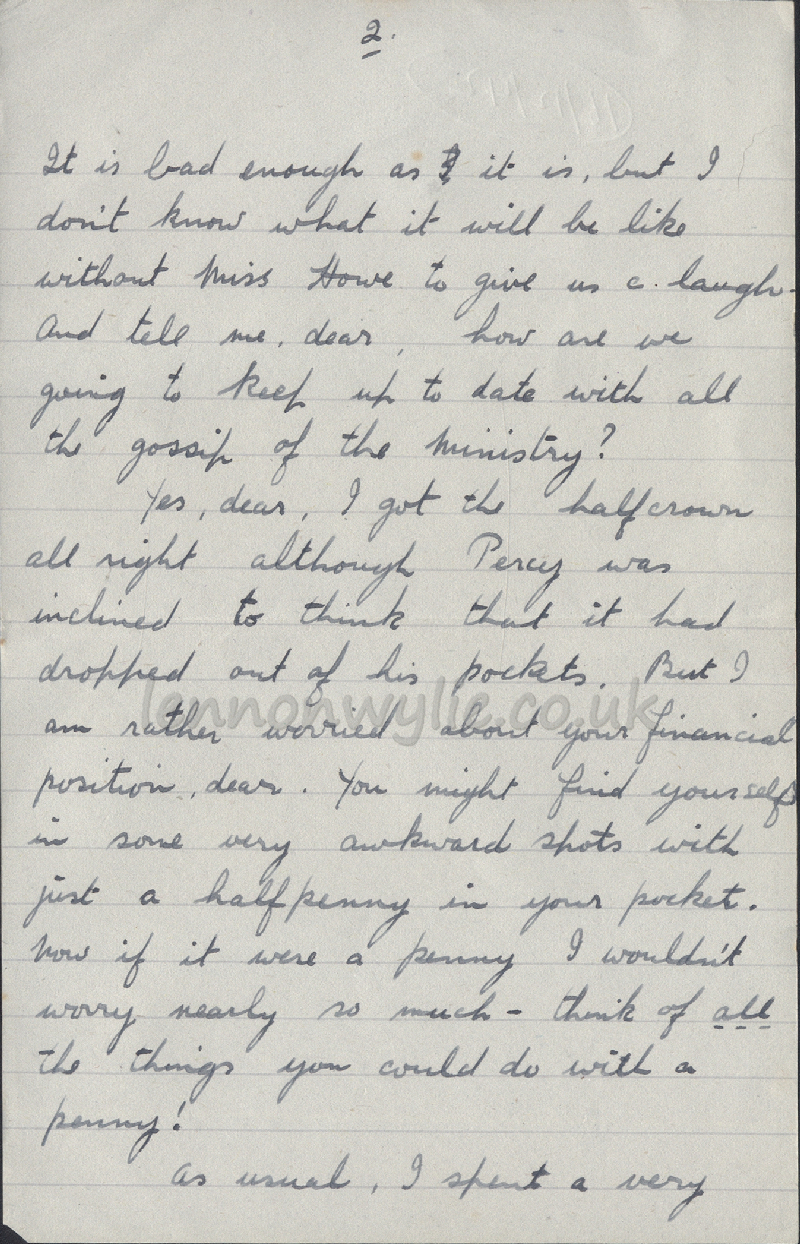 2.
It is bad enough as it is, but I
don't know what it will be like
without Miss Howe to give us a laugh.
And tell me, dear, how are we
going to keep up to date with all
the gossip of the Ministry?
Yes, dear, I got the halfcrown
all right although Percy was
inclined to think that it had
dropped out of his pockets. But I
lennonwylie.co.uk
am rather worried about your financial
position, dear. You might find yourself
in some very awkward spots with
just a halfpenny in your pocket.
Now if it were a penny I wouldn't
worry nearly so much - think of all
the things you could do with a
penny!
As usual, I spent a very